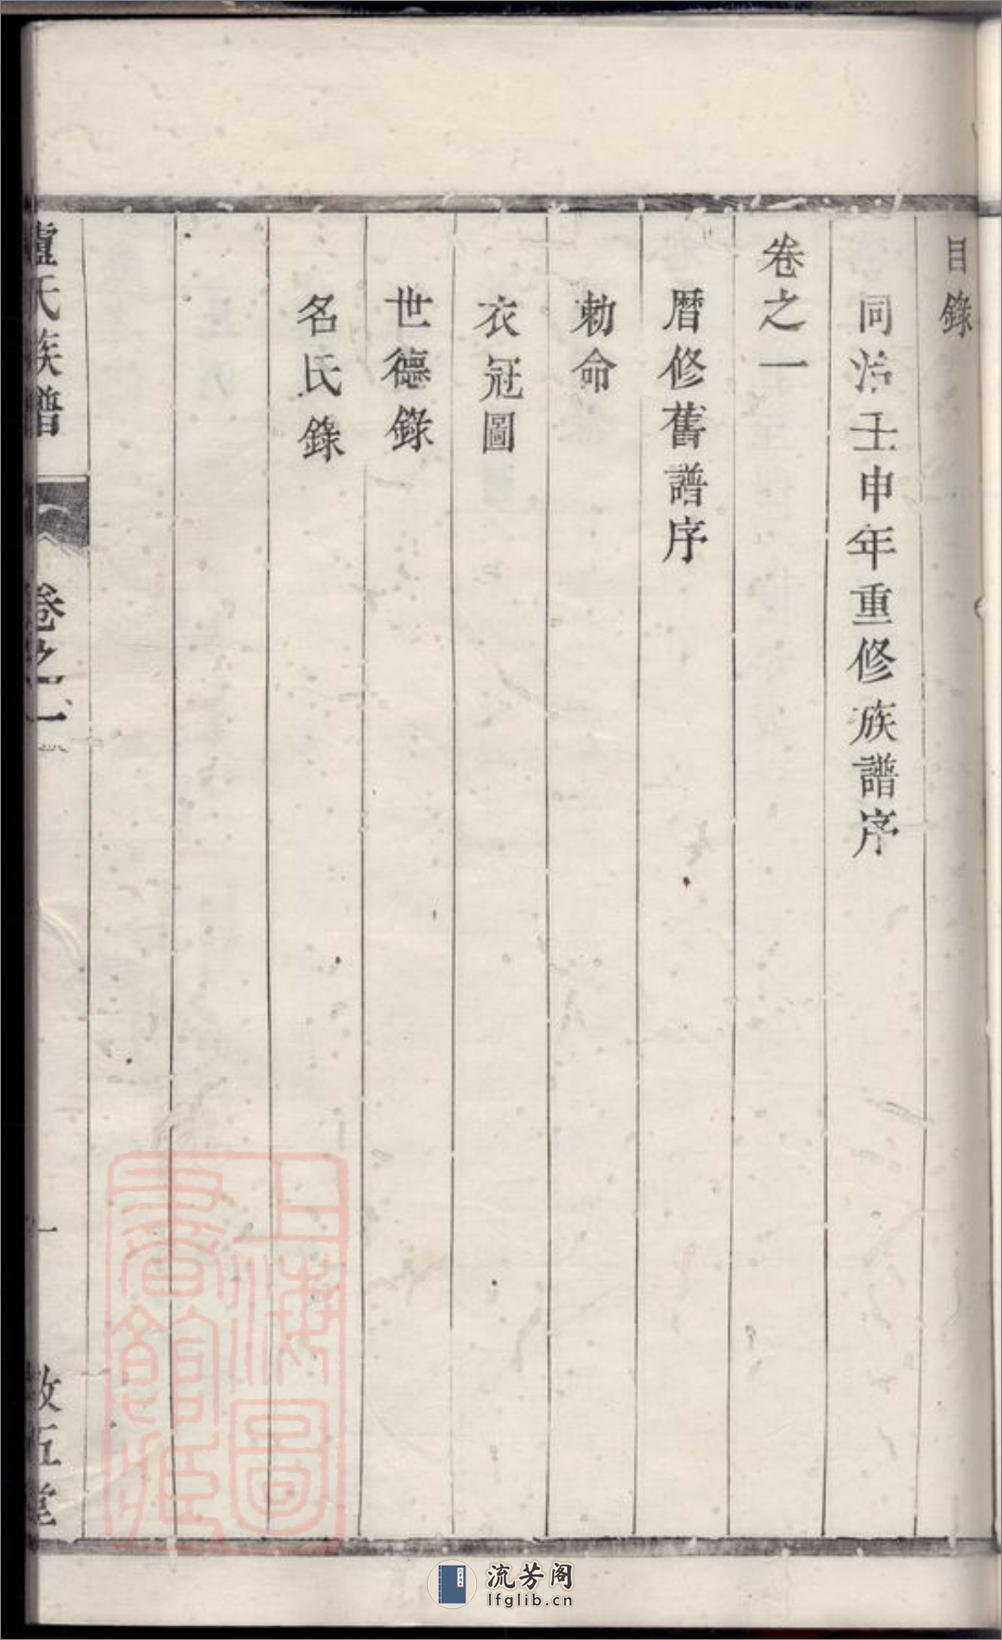 目錄
同治壬申年重修族譜序
卷之一
曆修舊譜序
勅命
衣冠圖
世德錄
名氏錄
盧氏族譜
卷之一
一
敦五堂
上海圖
書館藏
流芳阁
lfglib.cn